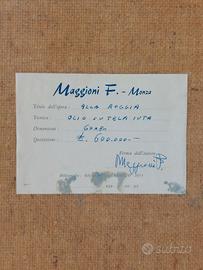 Maggioni F. - Monza
Titolo dell'opera: ALLA REGGIA
Tecnica: OLIO SU TELA IUTA
Dimensioni: 60x80
Quotazione: £. 600.000 =
Firma dell'autore
Maggioni F.
subito